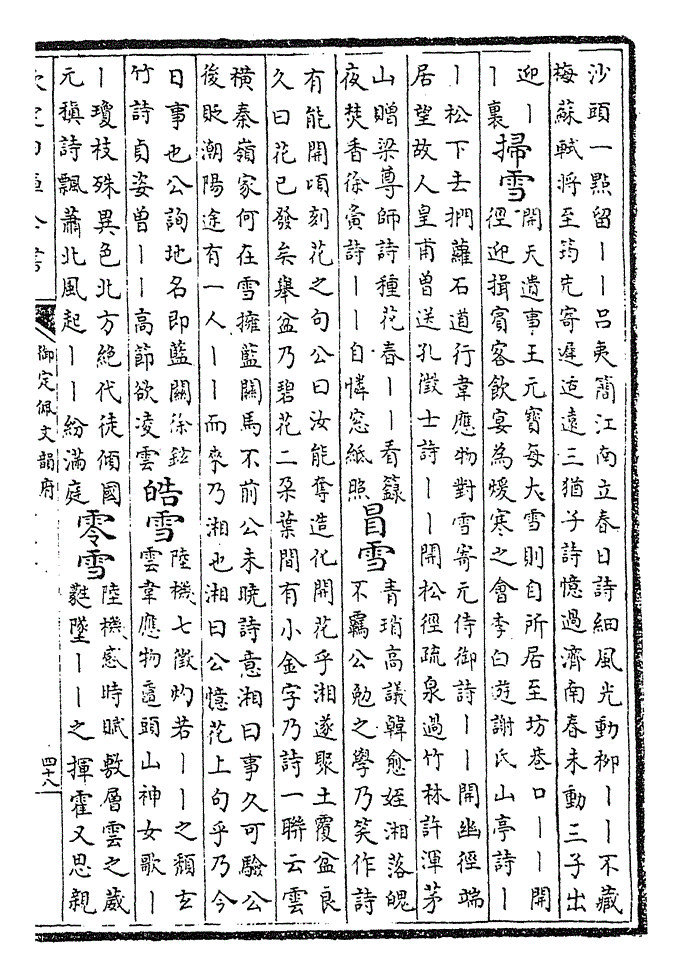 沙頭一點留｜｜呂夷簡江南立春日詩細風光動柳｜｜不藏
梅蘇軾將至筠先寄遲适遠三猶子詩憶過濟南春未動三子出
迎｜
｜裏
掃雪
開天遺事王元寶每大雪則自所居至坊巷口｜｜開
徑迎揖賓客飲宴為煖寒之會李白遊謝氏山亭詩｜
｜松下去捫蘿石道行韋應物對雪寄元侍御詩｜｜開幽徑端
居望故人皇甫曾送孔徵士詩｜｜開松徑疏泉過竹林許渾茅
山贈梁尊師詩種花春｜｜看籙
夜焚香徐夤詩｜｜自憐窓紙照
冒雪
青瑣高議韓愈姪湘落魄
不羈公勉之學乃笑作詩
有能開頃刻花之句公曰汝能奪造化開花乎湘遂聚土覆盆良
久曰花已發矣舉盆乃碧花二朵葉間有小金字乃詩一聯云雲
橫秦嶺家何在雪擁藍關馬不前公未曉詩意湘曰事久可驗公
後貶潮陽途有一人｜｜而來乃湘也湘曰公憶花上句乎乃今
日事也公詢地名即藍關徐鉉
竹詩貞姿曾｜｜高節欲凌雲
皓雪
陸機七徵灼若｜｜之頹玄
雲韋應物黿頭山神女歌｜
｜瓊枝殊異色北方絕代徒傾國
元稹詩飄蕭北風起｜｜紛滿庭
零雪
陸機感時賦敷層雲之葳
蕤墜｜｜之揮霍又思親
御定佩文韻府
四十八